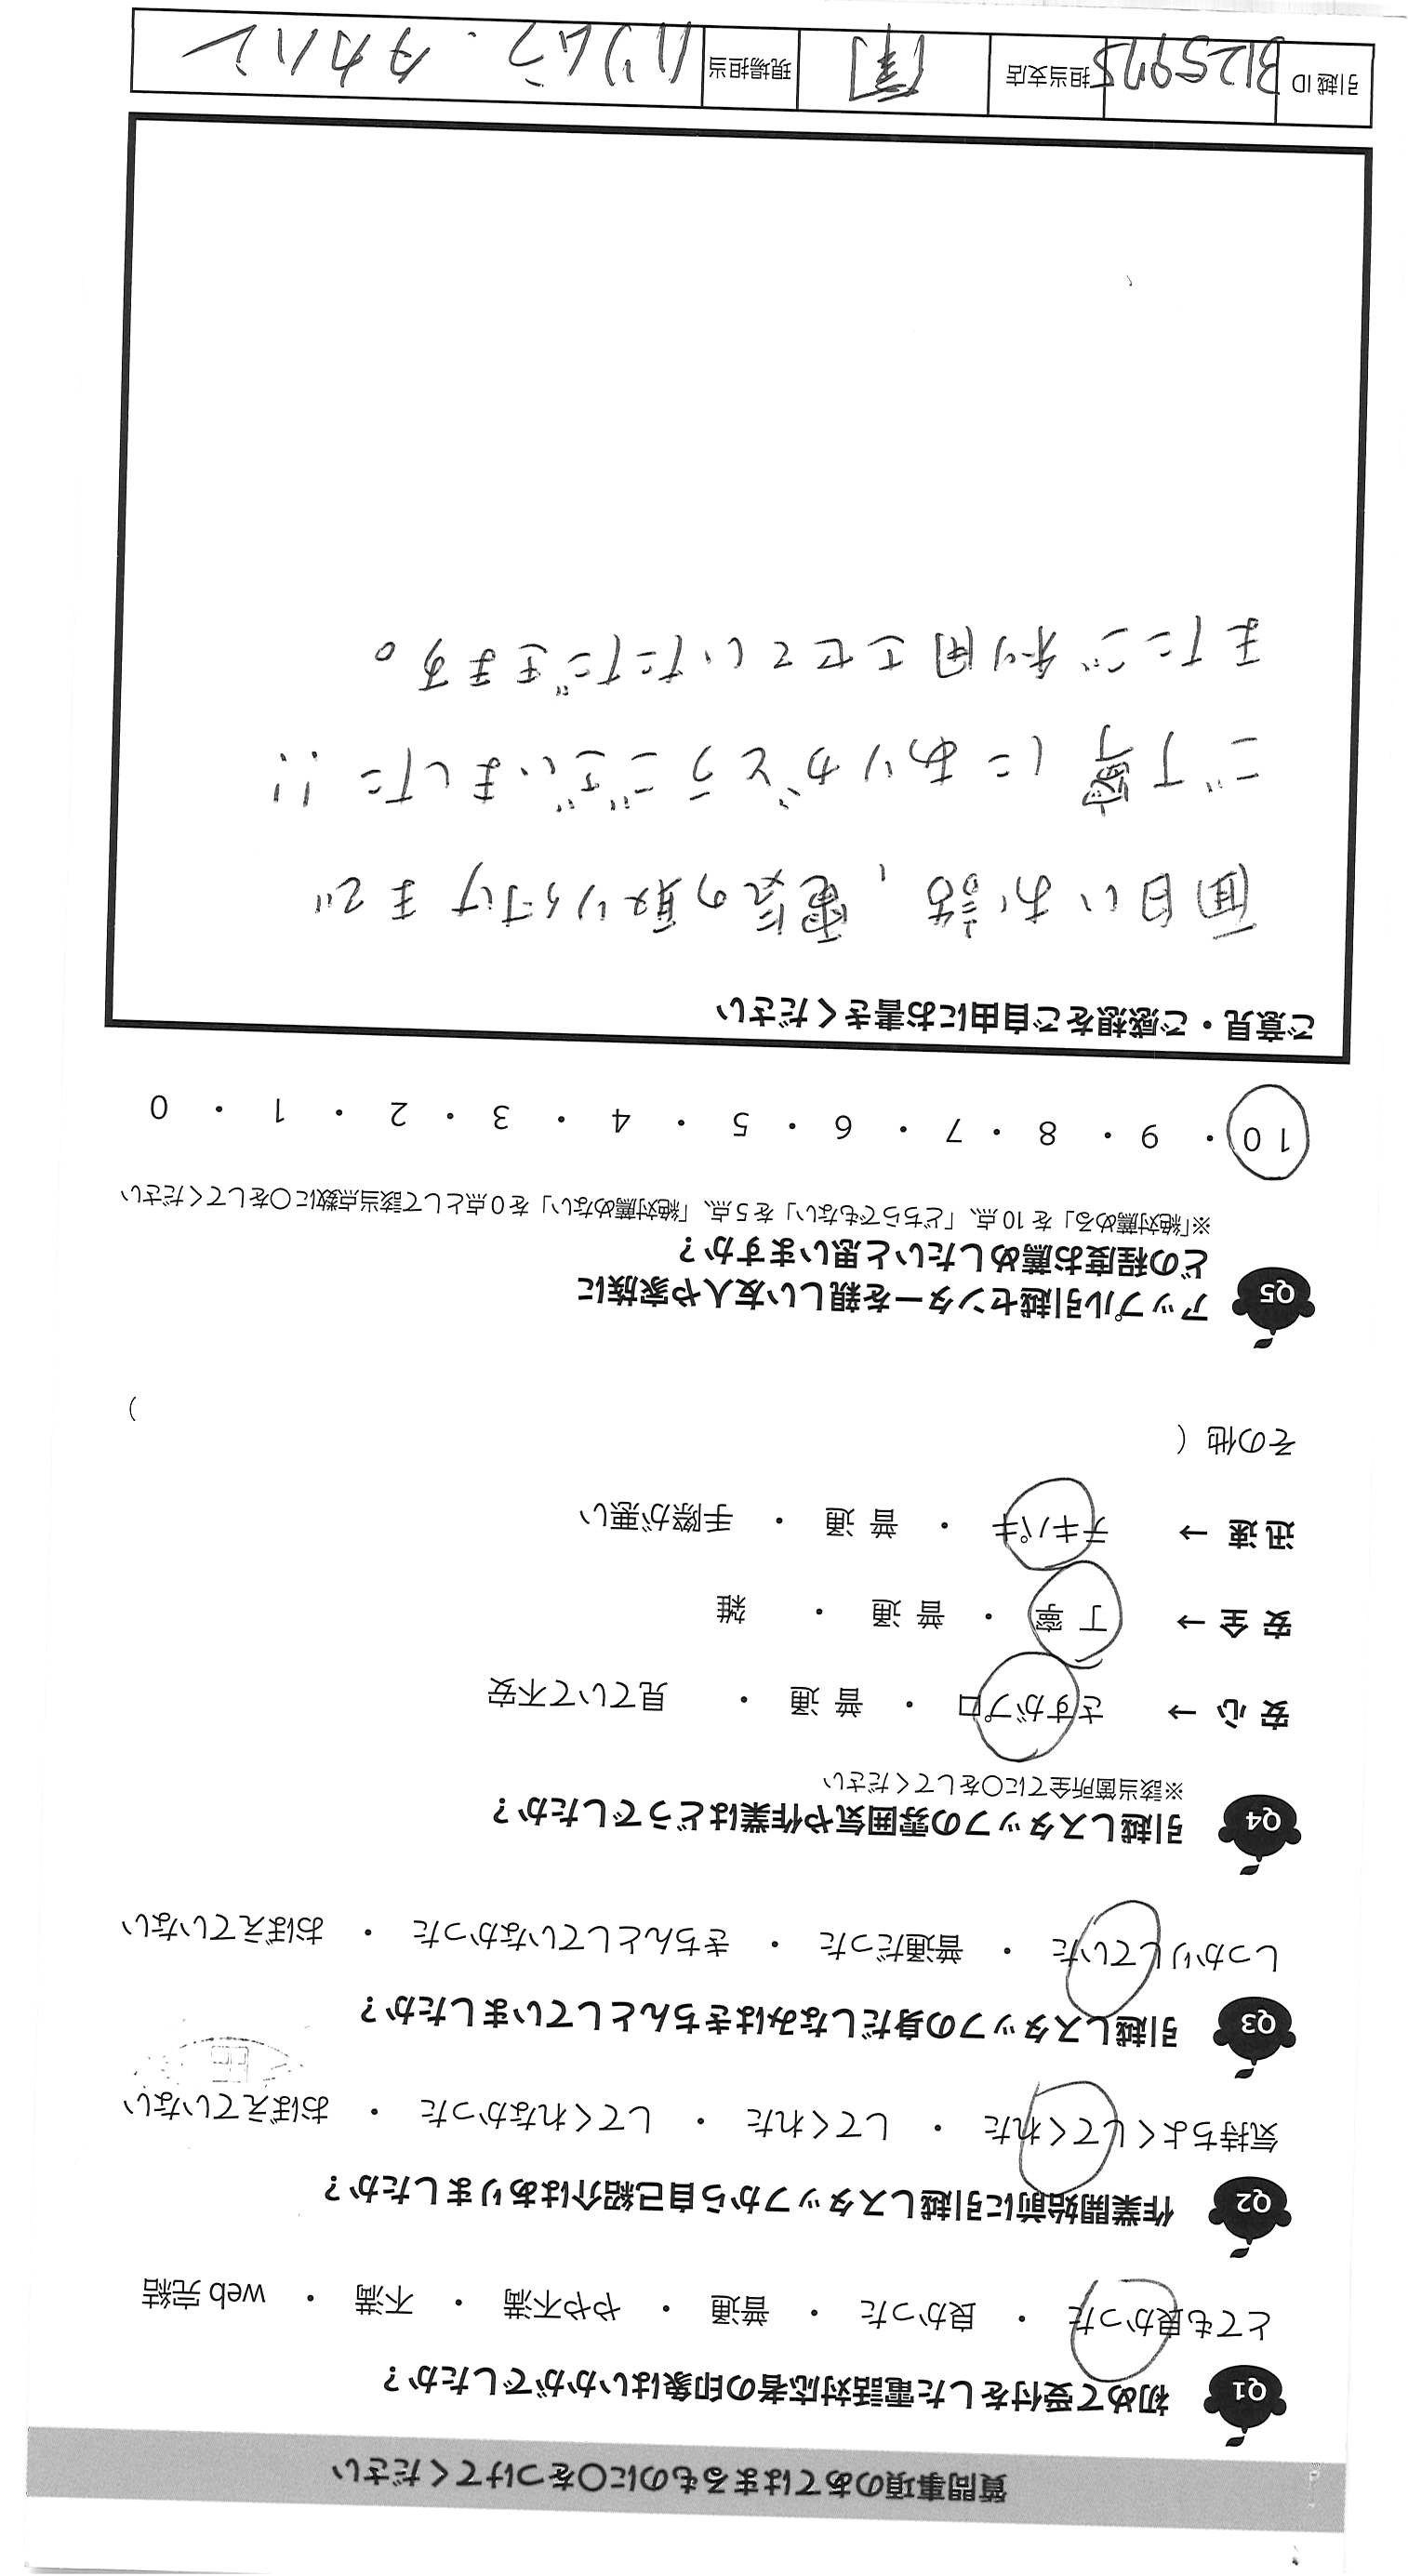 質問事項のあてはまるものに〇をつけてください
Q1 初めて受付をした電話対応者の印象はいかがでしたか？
とても良かった ・ 良かった ・ 普通 ・ やや不満 ・ 不満 ・ web 完結
Q2 作業開始前に引越しスタッフから自己紹介はありましたか？
気持ちよくしてくれた ・ してくれた ・ してくれなかった ・ おぼえていない
Q3 引越しスタッフの身だしなみはきちんとしていましたか？
しっかりしていた ・ 普通だった ・ きちんとしていなかった ・ おぼえていない
Q4 引越しスタッフの雰囲気や作業はどうでしたか？
※該当箇所全てに〇をしてください
安心 → さすがプロ ・ 普通 ・ 見ていて不安
安全 → 丁寧 ・ 普通 ・ 雑
迅速 → テキパキ ・ 普通 ・ 手際が悪い
その他（ ）
Q5 アップル引越センターを親しい友人や家族に
どの程度お薦めしたいと思いますか？
※「絶対薦める」を 10 点、「どちらでもない」を 5 点、「絶対薦めない」を 0 点として該当点数に〇をしてください
10 ・ 9 ・ 8 ・ 7 ・ 6 ・ 5 ・ 4 ・ 3 ・ 2 ・ 1 ・ 0
ご意見・ご感想をご自由にお書きください
面白いお話、電気の取り付けまで
ご丁寧にありがとうございました!!
またご利用させていただきます。
引越 ID 担当支店 現場担当 タカハシ